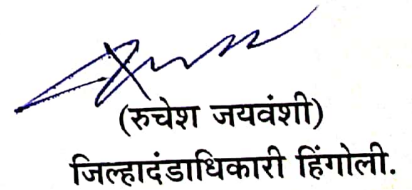 (रुचेश जयवंशी)
जिल्हादंडाधिकारी हिंगोली.